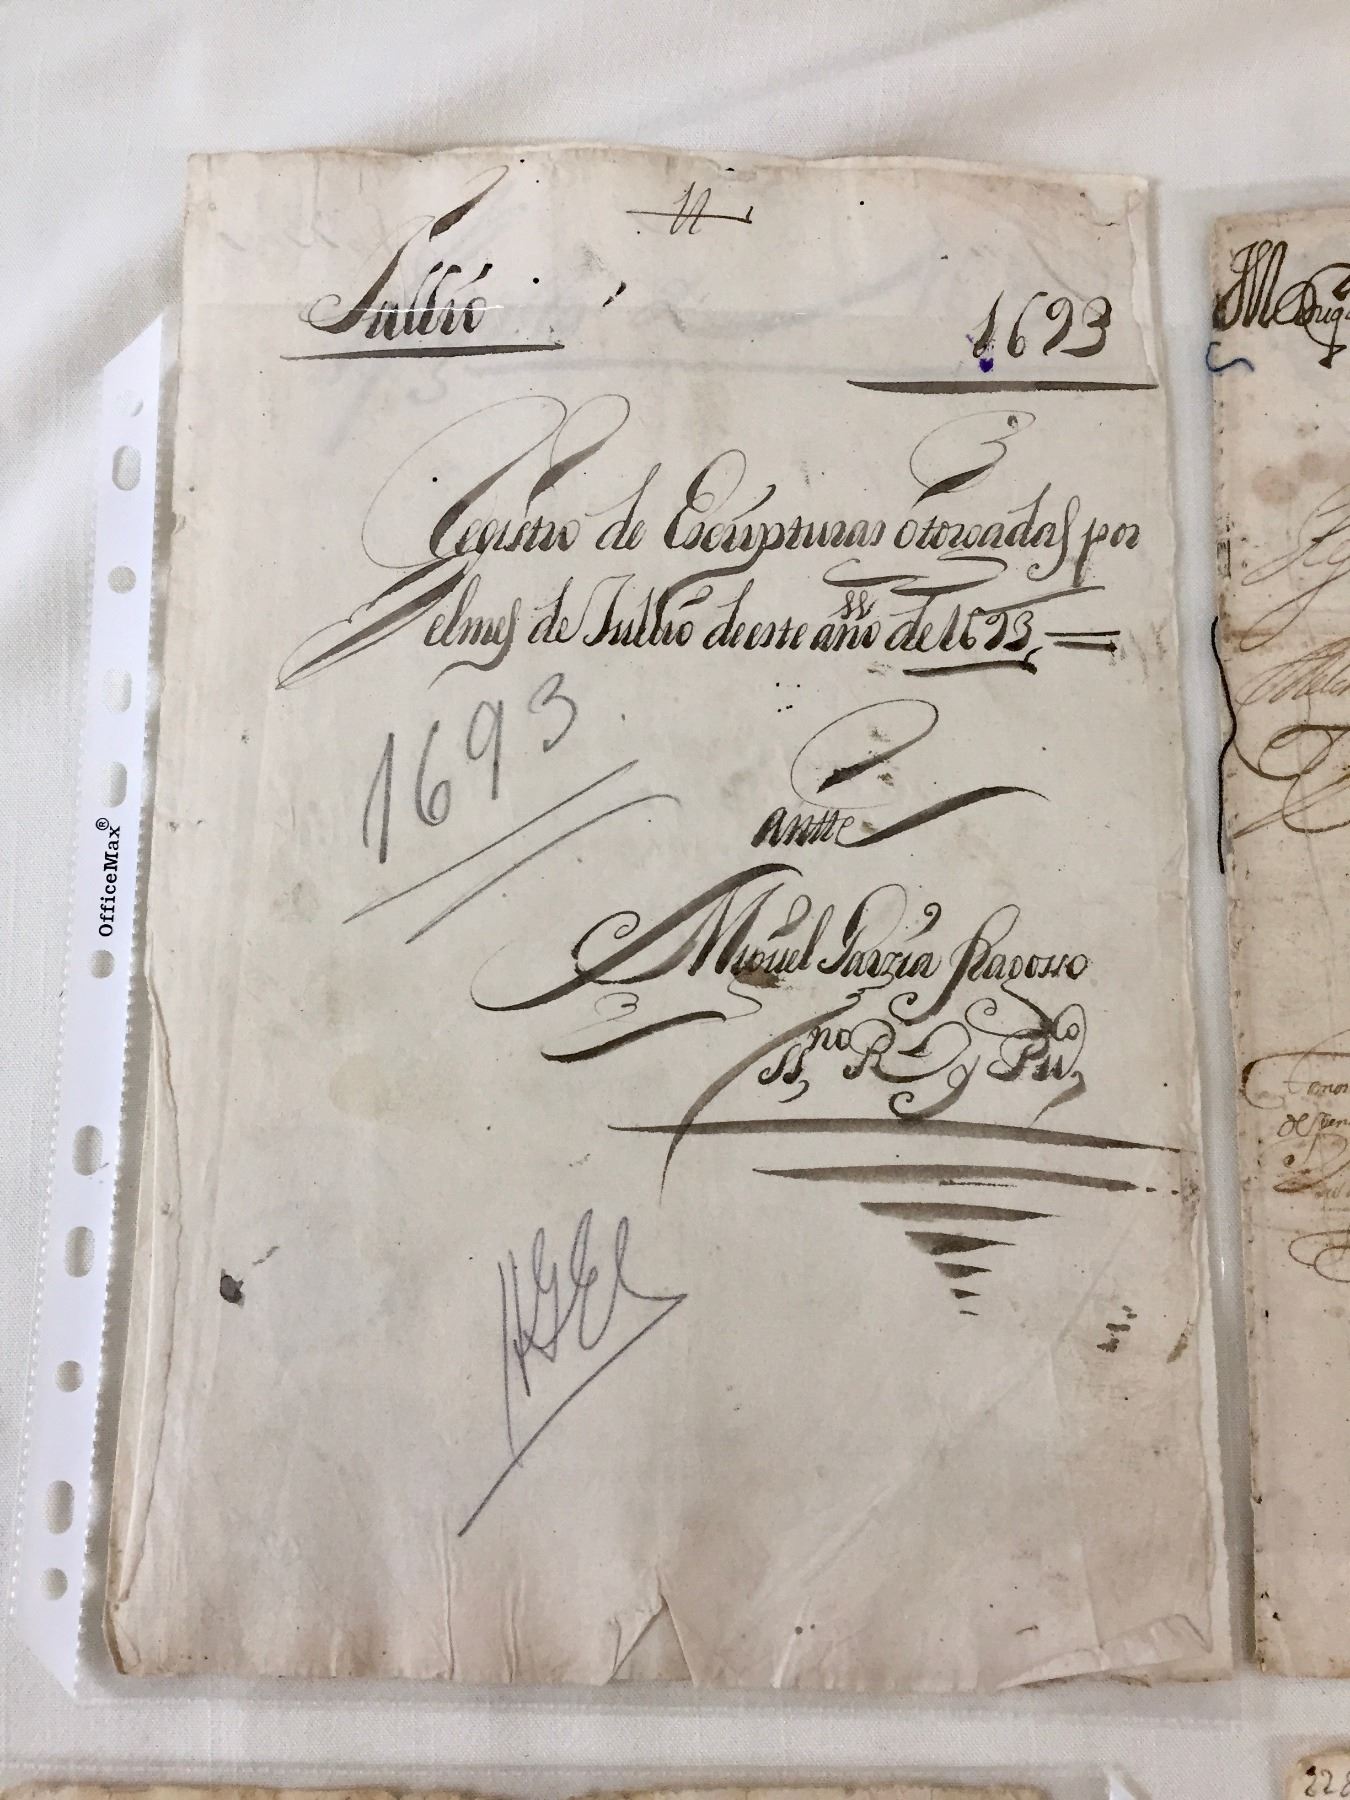 Jullio
1693
Registro de Escripturas otorgadas por
el mes de Jullio de este año de 1693
1693
antte
Miguel Garzia Fragosso
ss.no R.l y Pu.co
OfficeMax®
228